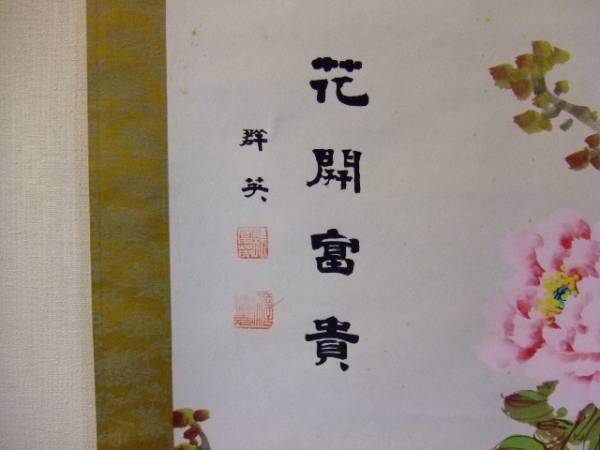 花開富貴
群英